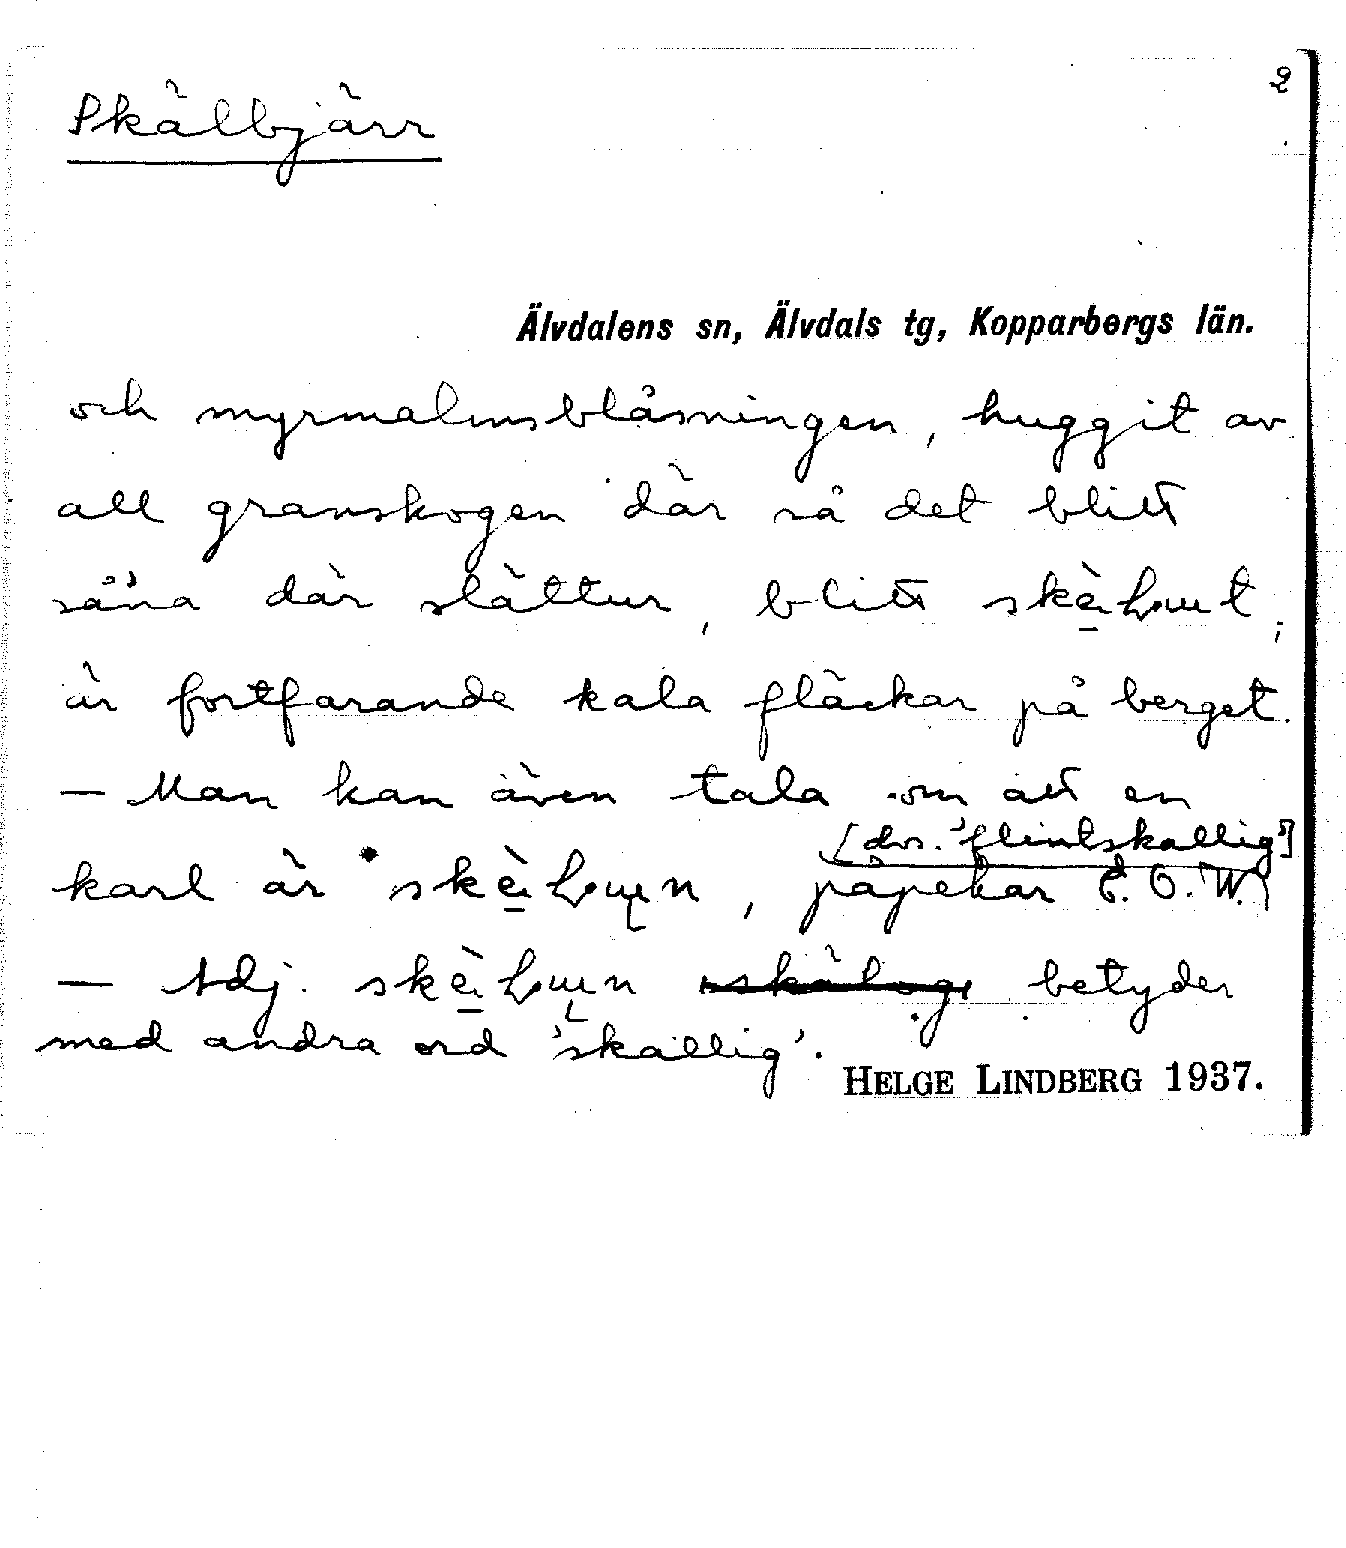 2
Skälbjärr
Älvdalens sn, Älvdals tg, Kopparbergs län.
och myrmalmsblåsningen, huggit av
all granskogen där så det blitt
såna där slättur, blitt
är fortfarande kala fläckar på berget.
— Man kan även tala om att en
[dvs. 'flintskallig']
karl är , påpekar E. O. W.
— Adj. betyder
med andra ord 'skallig'.
HELGE LINDBERG 1937.